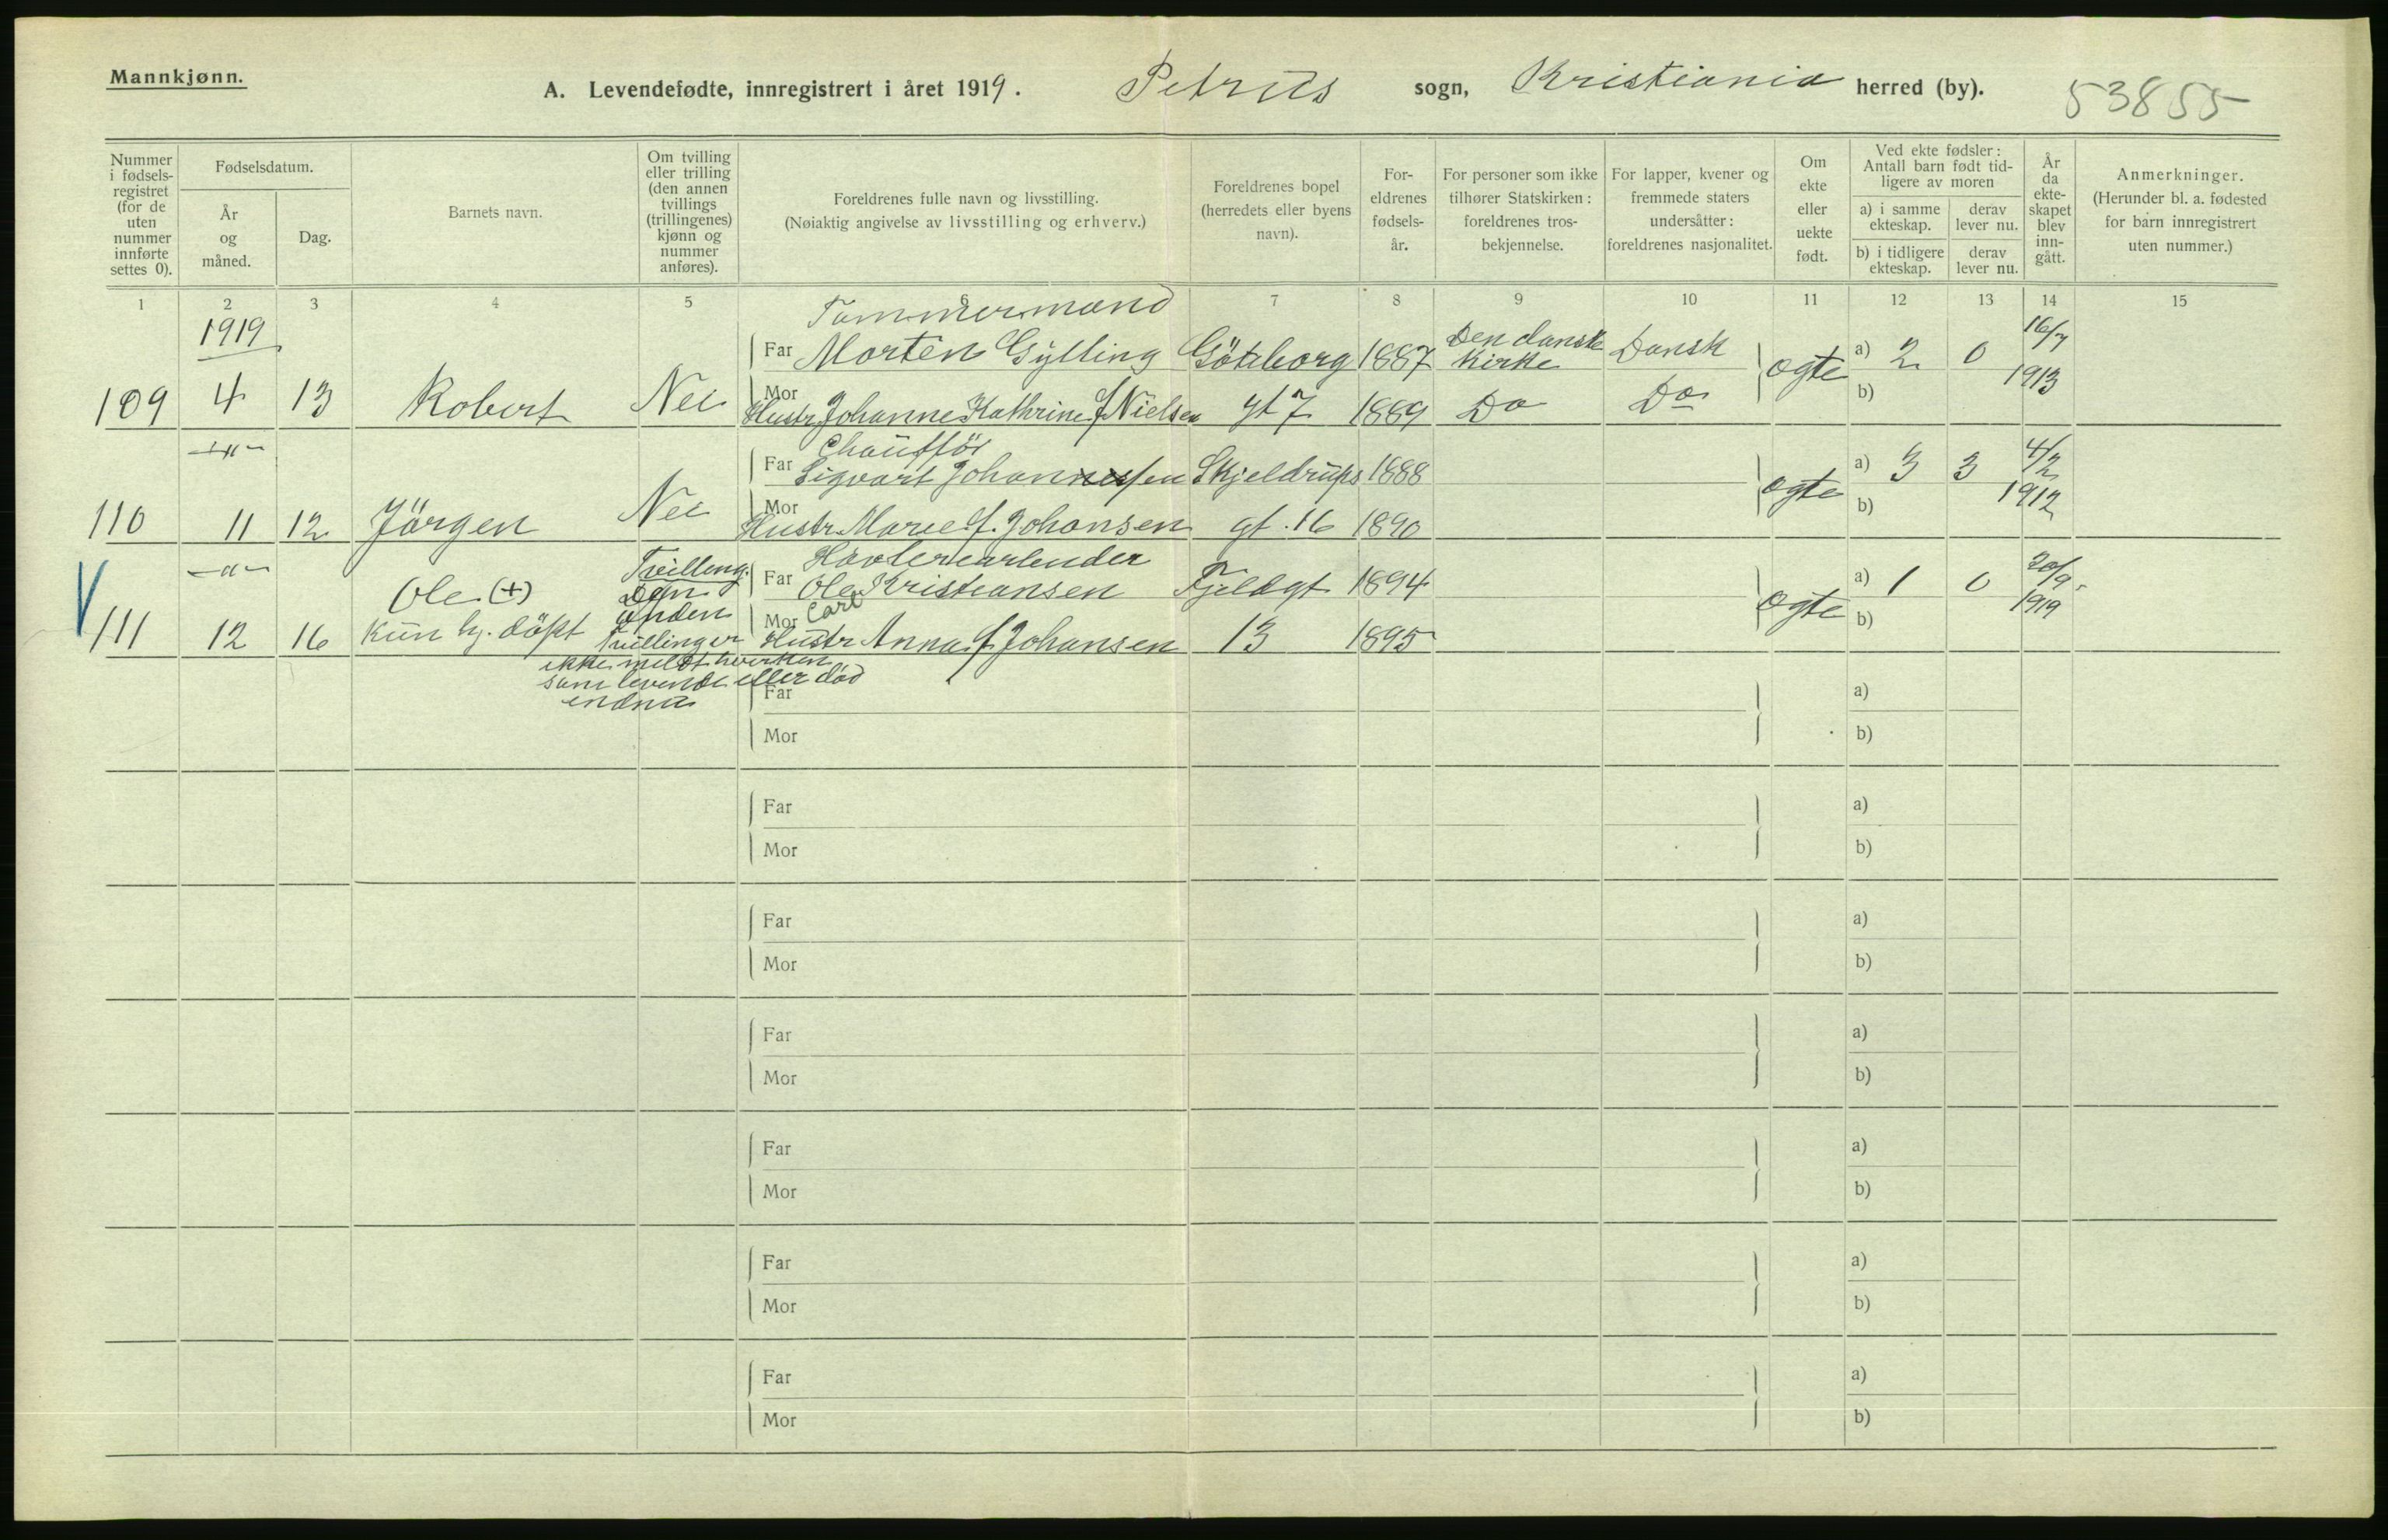 Mannkjønn.
A. Levendefødte, innregistrert i året 1919. Petrus sogn, Kristiania herred (by). 53855
Nummer i fødsels-registret (for de uten nummer innførte settes 0).
Fødselsdatum.
År og måned.
Dag.
Barnets navn.
Om tvilling eller trilling (den annen tvillings (trillingenes) kjønn og nummer anføres).
Foreldrenes fulle navn og livsstilling.
(Nøiaktig angivelse av livsstilling og erhverv.)
Foreldrenes bopel (herredets eller byens navn).
For-eldrenes fødsels-år.
For personer som ikke tilhører Statskirken: foreldrenes tros-bekjennelse.
For lapper, kvener og fremmede staters undersåtter: foreldrenes nasjonalitet.
Om ekte eller uekte født.
Ved ekte fødsler: Antall barn født tid-ligere av moren
a) i samme ekteskap.
derav lever nu.
b) i tidligere ekteskap.
derav lever nu.
År da ekte-skapet blev inn-gått.
Anmerkninger.
(Herunder bl. a. fødested for barn innregistrert uten nummer.)
1 2 3 4 5 6 7 8 9 10 11 12 13 14 15
1919
Tømmermand
Far Morten Gylling Göteborg 1887 Den dansk Kirke Dansk ogte a) 2 0 16/7 1913
109 4 13 Robert Nei Mor Hustr Johanne Kathrine f Nielsen gt 7 1889 Do Do b)
—"— Chauffør
Far Sigvart Johannessen Skjeldrups 1888 ogte a) 3 3 4/2 1912
110 11 12 Jörgen Nei Mor Hustr Marie f. Johansen gt. 16 1890 b)
—"— Tvilling.
Far Ole Kristiansen Fjeldgt 1894 ogte a) 1 0 20/9 1919
Ole (+) Den anden
Carl
111 12 16 Kun hj. döpt Tvillinger Mor Hustr Anna f Johansen 13 1895 b)
ikke meldt hverken
som levende eller død
endnu
Far a)
Mor b)
Far a)
Mor b)
Far a)
Mor b)
Far a)
Mor b)
Far a)
Mor b)
Far a)
Mor b)
Far a)
Mor b)